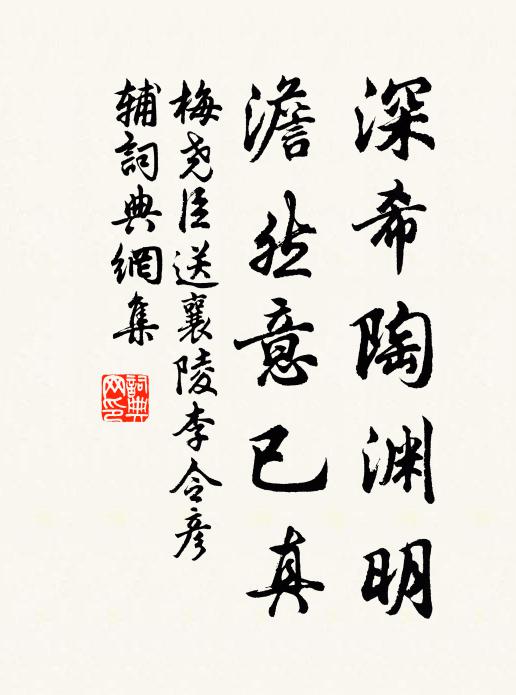 深希陶渊明
澹然意已真
梅尧臣送襄陵李令彦
辅詞典網集
詞典
网印